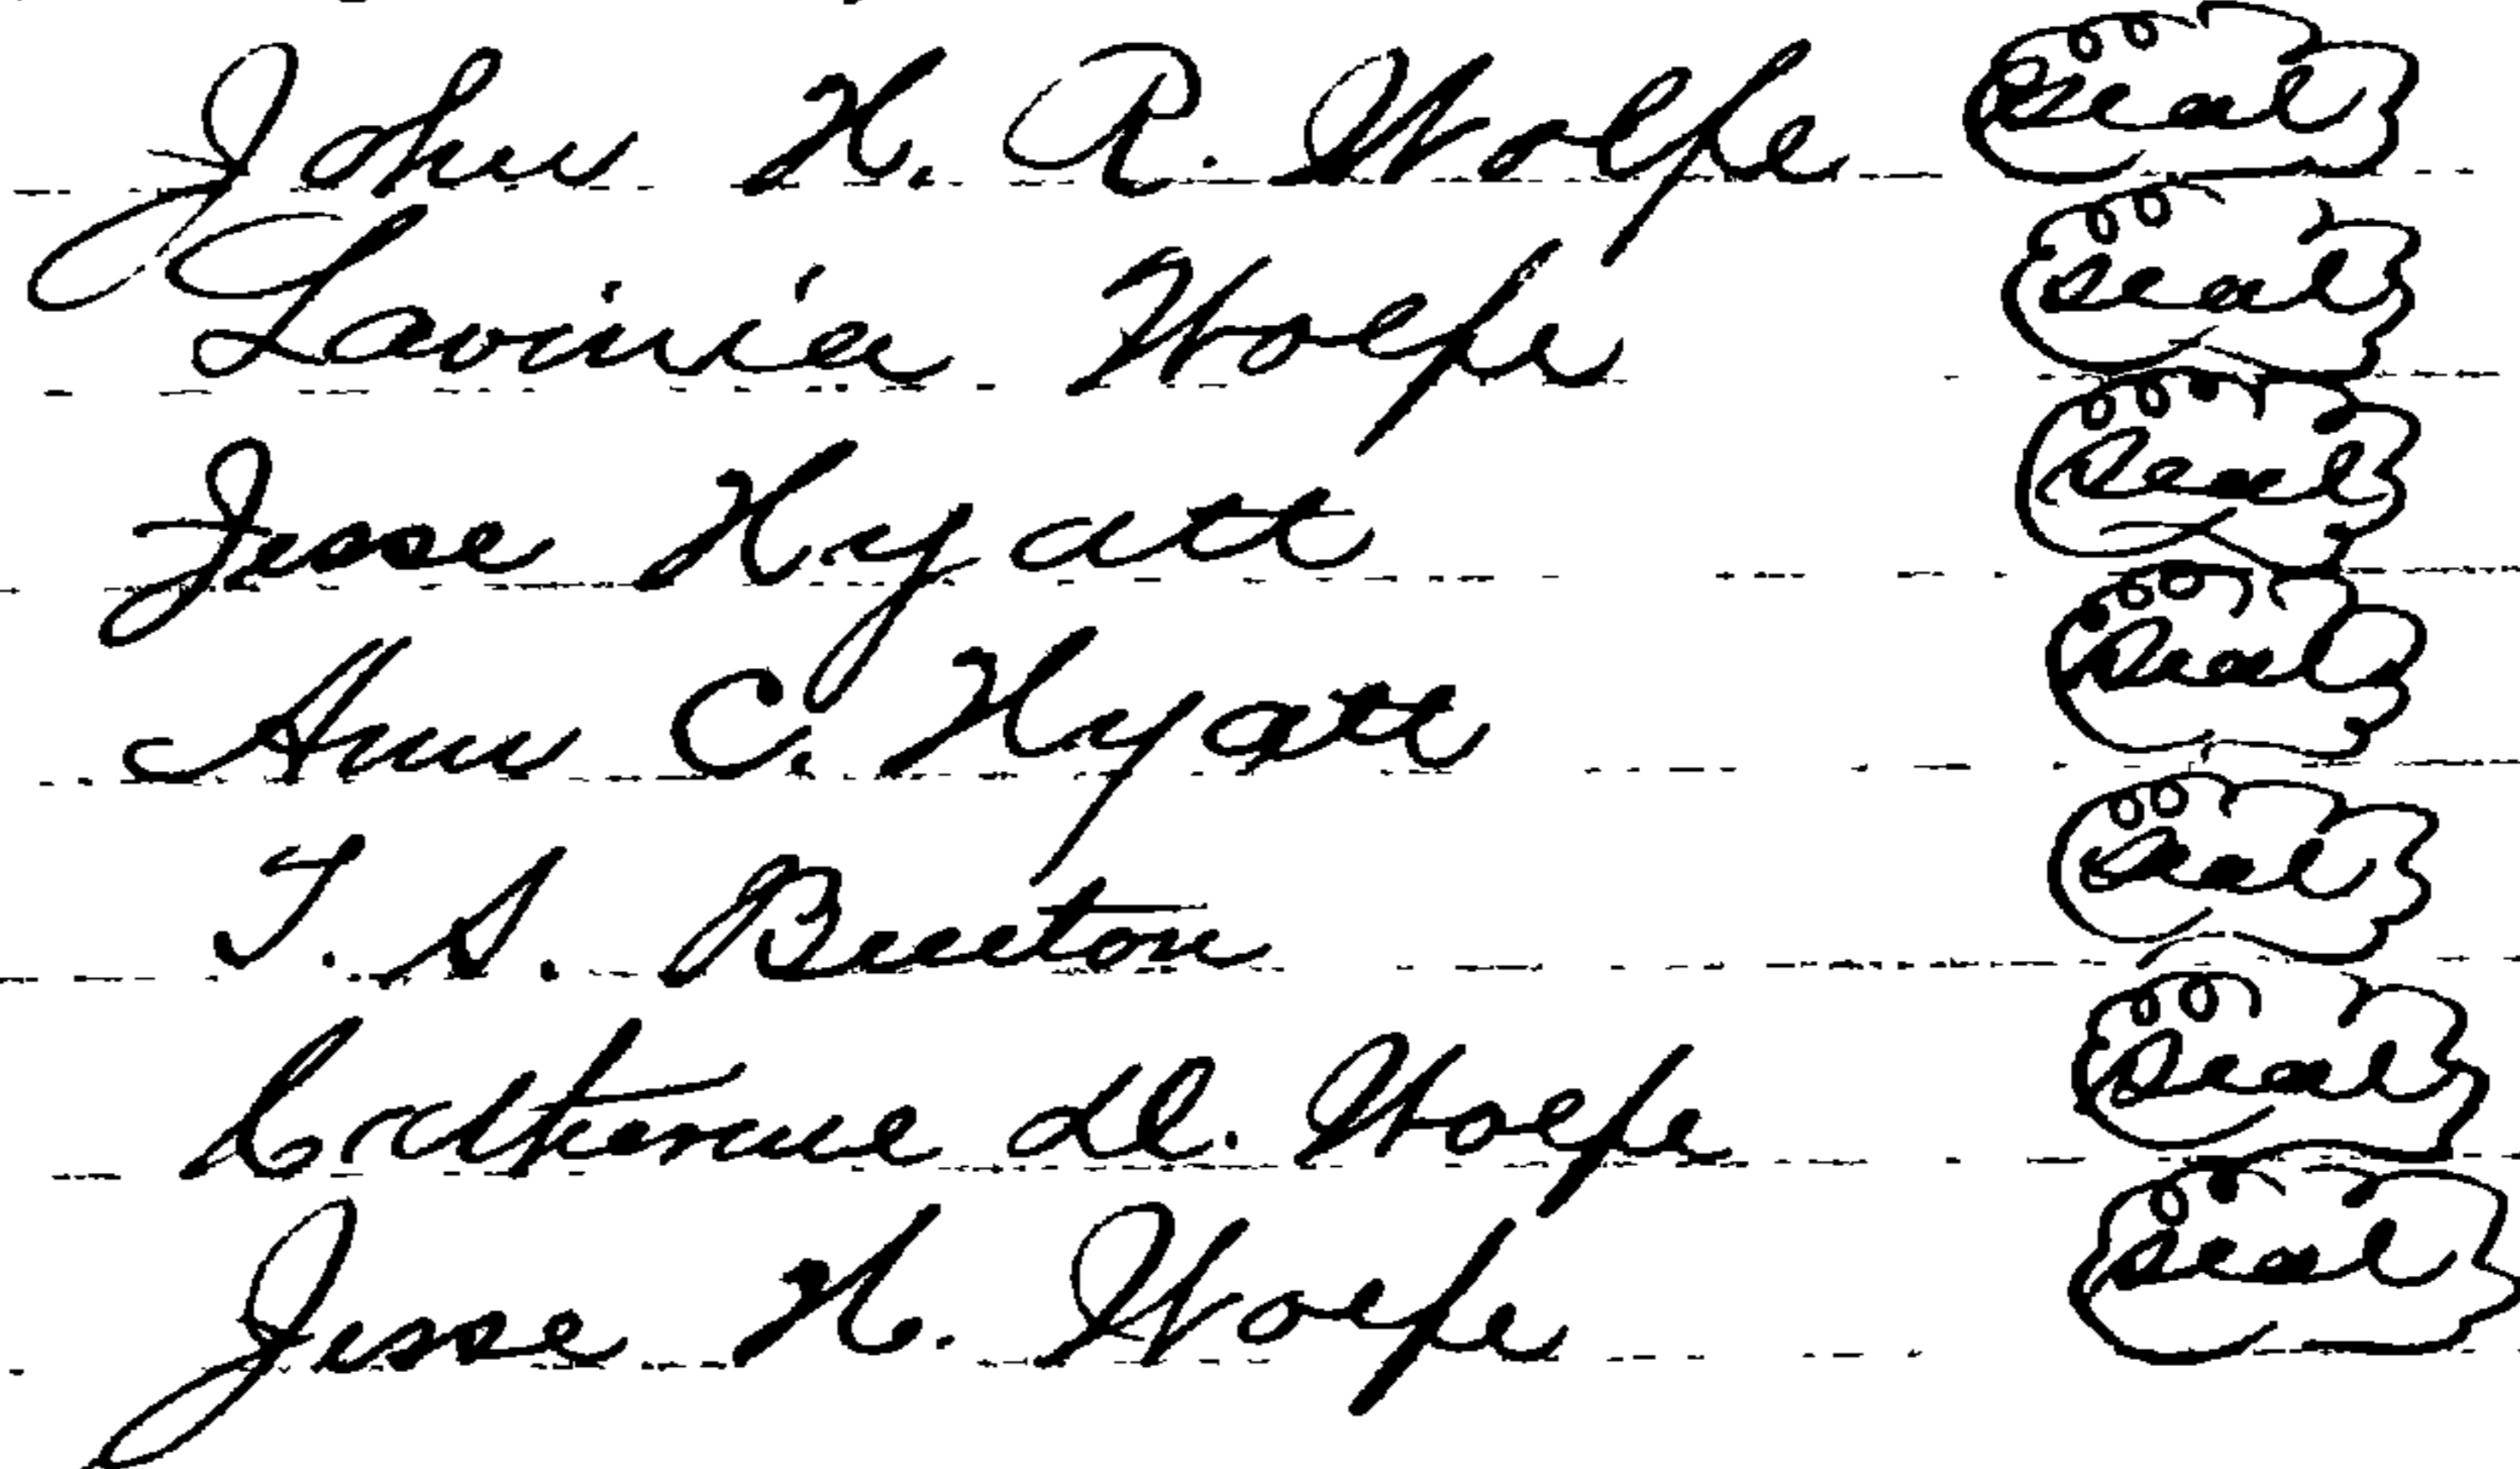 John H. R. Wolfe Seal
Lavinia Wolfe Seal
Jesse Hyatt Seal
Ann C. Hyatt Seal
T. S. Seal
Catherine Wolfe Seal
Jesse H. Wolfe Seal